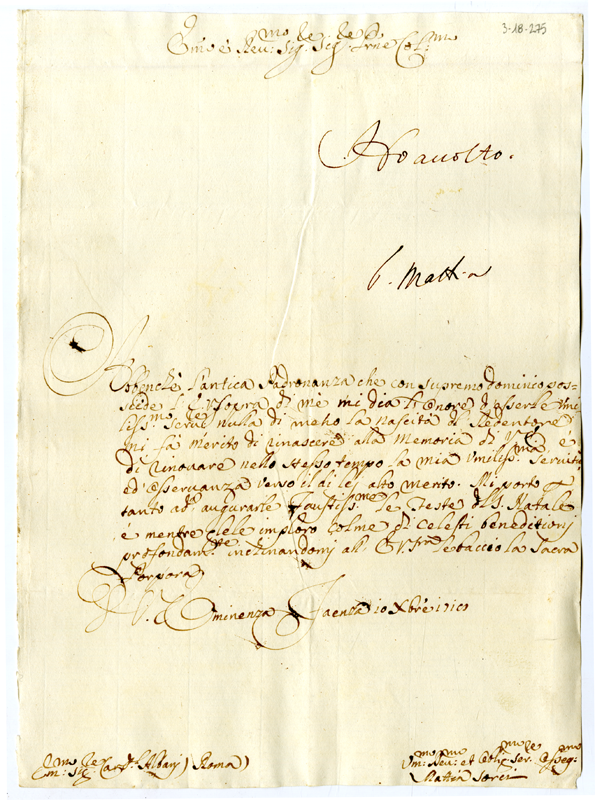 3-18-275
Em̃o e Reu:mo Sig.re Sig.re Prne Col:mo
Noavolto.
Abbenche l'antica Padronanza che con supremo dominio pos=
siede l'E V sopra di mè mi dia l'honore d'esserle Umi
liss.mo Seru.re nulla di meno la nascita del Redentore
mi fà merito di rinascere alla Memoria di V Em.a e
di rinouare nello stesso tempo la mia Vmiliss.ma Seruitù
ed' osseruanza verso il di lei alto merito. Mi porto
tanto ad' augurarle Faustiss.me le Feste del S. Natale
e mentre dal Cielo imploro colme di Celesti beneditioni
profondam.te inclinandomi all' E V le baccio la Sacra
Porpora
V. Eminenza Faenza 10 Xbre 1710
Em:mo Sig.re Card.l Albanj (Roma)
Um:mo Reu:mo et Oblig:mo Ser.re Osseq:mo
Mattia